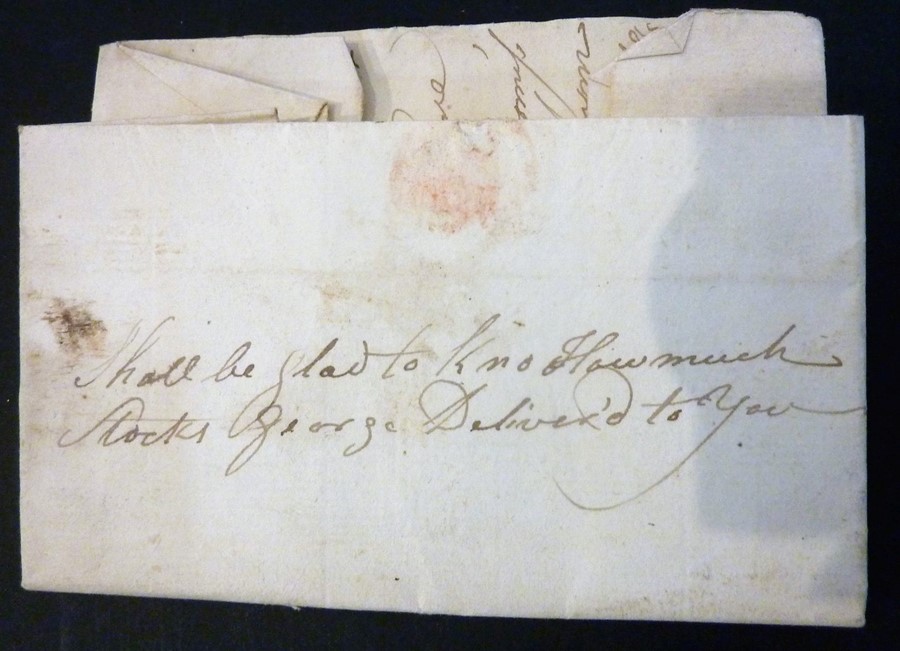 Shall be glad to Kno How much
Stocks George Deliver'd to You